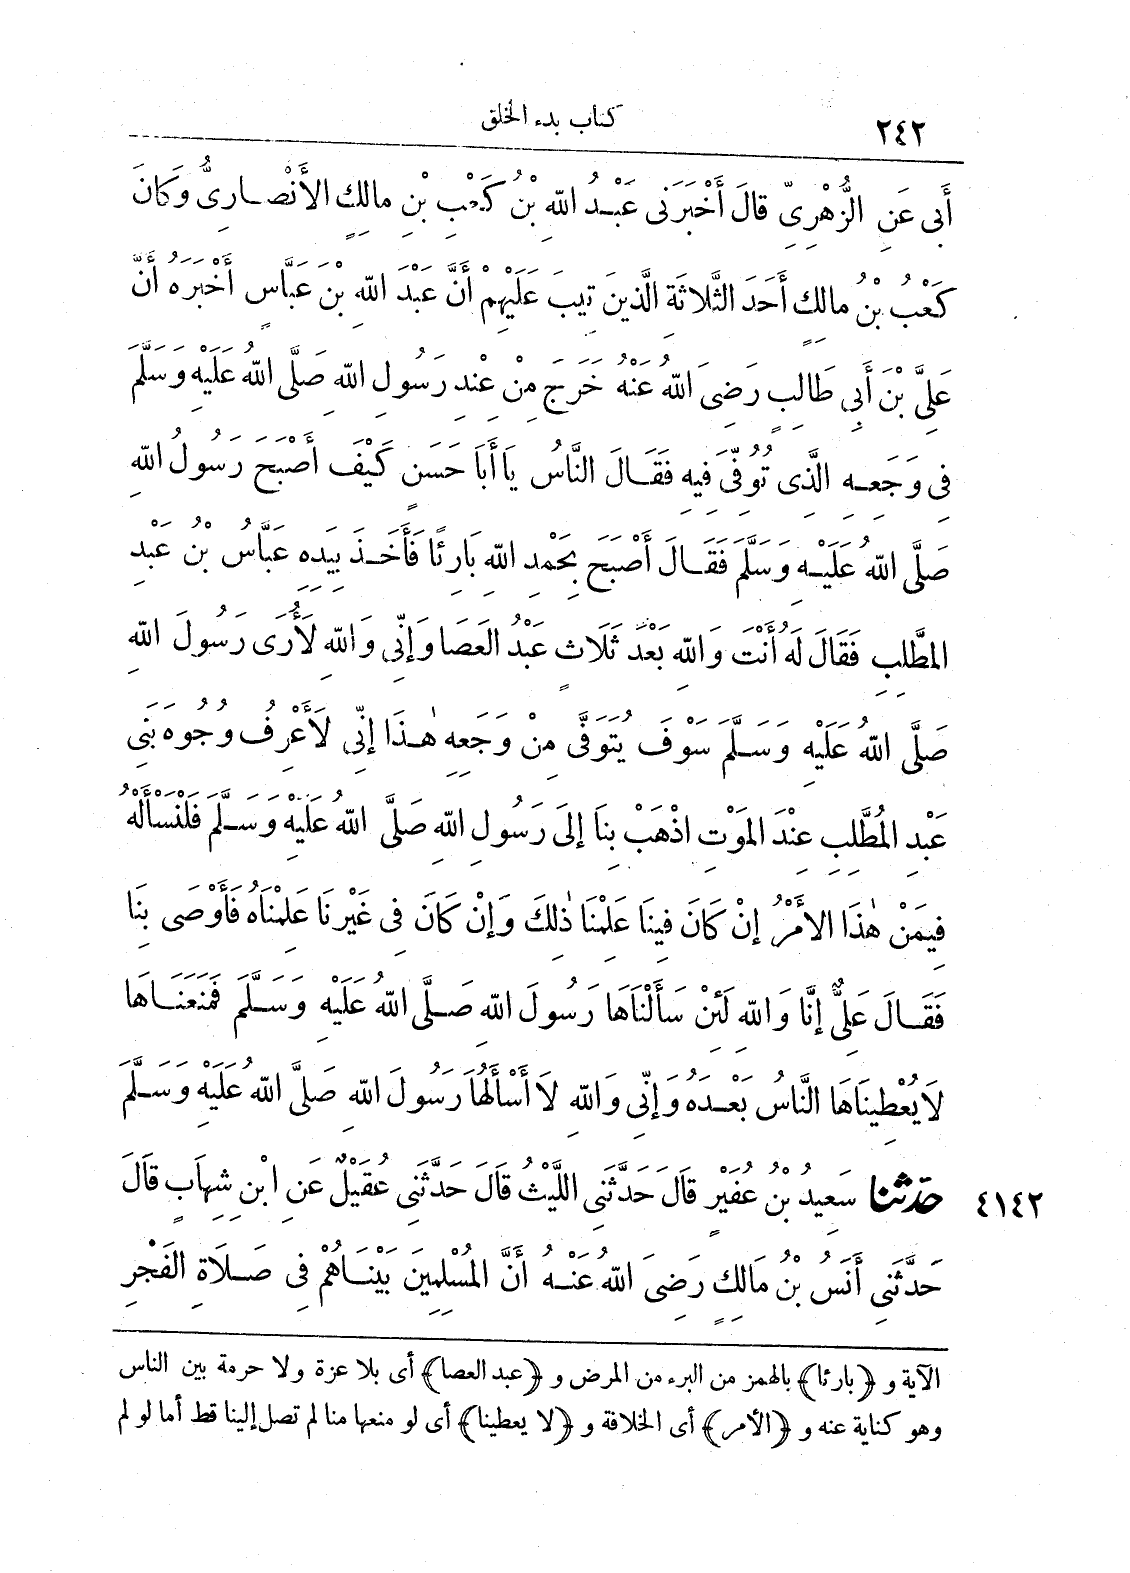 ٢٤٢
كتاب بدء الخلق
أَبِى عَنِ الزُّهْرِىِّ قَالَ أَخْبَرَنِى عَبْدُ اللهِ بْنُ كَعْبِ بْنِ مالِكٍ الأَنْصَارِىُّ وَكَانَ
كَعْبُ بْنُ مالِكٍ أَحَدَ الثَّلَاثَةِ الَّذِينَ تِيبَ عَلَيْهِمْ أَنَّ عَبْدَ اللهِ بْنَ عَبَّاسٍ أَخْبَرَهُ أَنَّ
عَلِىَّ بْنَ أَبِى طَالِبٍ رَضِىَ اللهُ عَنْهُ خَرَجَ مِنْ عِنْدِ رَسُولِ اللهِ صَلَّى اللهُ عَلَيْهِ وَسَلَّمَ
فِى وَجَعِهِ الَّذِى تُوُفِّىَ فِيهِ فَقَالَ النَّاسُ يَا أَبَا حَسَنٍ كَيْفَ أَصْبَحَ رَسُولُ اللهِ
صَلَّى اللهُ عَلَيْهِ وَسَلَّمَ فَقَالَ أَصْبَحَ بِحَمْدِ اللهِ بَارِئًا فَأَخَذَ بِيَدِهِ عَبَّاسُ بْنُ عَبْدِ
المُطَّلِبِ فَقَالَ لَهُ أَنْتَ وَاللهِ بَعْدَ ثَلَاثٍ عَبْدُ العَصَا وَإِنِّى وَاللهِ لَأُرَى رَسُولَ اللهِ
صَلَّى اللهُ عَلَيْهِ وَسَلَّمَ سَوْفَ يُتَوَفَّى مِنْ وَجَعِهِ هٰذَا إِنِّى لَأَعْرِفُ وُجُوهَ بَنِى
عَبْدِ المُطَّلِبِ عِنْدَ المَوْتِ اذْهَبْ بِنَا إِلَى رَسُولِ اللهِ صَلَّى اللهُ عَلَيْهِ وَسَلَّمَ فَلْنَسْأَلْهُ
فِيمَنْ هٰذَا الأَمْرُ إِنْ كَانَ فِينَا عَلِمْنَا ذٰلِكَ وَإِنْ كَانَ فِى غَيْرِنَا عَلِمْنَاهُ فَأَوْصَى بِنَا
فَقَالَ عَلِىٌّ إِنَّا وَاللهِ لَئِنْ سَأَلْنَاهَا رَسُولَ اللهِ صَلَّى اللهُ عَلَيْهِ وَسَلَّمَ فَمَنَعَنَاهَا
لَا يُعْطِينَاهَا النَّاسُ بَعْدَهُ وَإِنِّى وَاللهِ لَا أَسْأَلُهَا رَسُولَ اللهِ صَلَّى اللهُ عَلَيْهِ وَسَلَّمَ
٤١٤٢ حَدَّثَنا سَعِيدُ بْنُ عُفَيْرٍ قَالَ حَدَّثَنِى اللَّيْثُ قَالَ حَدَّثَنِى عُقَيْلٌ عَنِ ابْنِ شِهَابٍ قَالَ
حَدَّثَنِى أَنَسُ بْنُ مَالِكٍ رَضِىَ اللهُ عَنْهُ أَنَّ المُسْلِمِينَ بَيْنَاهُمْ فِى صَلَاةِ الفَجْرِ
الآية و ﴿بارئا﴾ بالهمز من البرء من المرض و ﴿عبد العصا﴾ أى بلا عزة ولا حرمة بين الناس
وهو كناية عنه و ﴿الأمر﴾ أى الخلافة و ﴿لا يعطينا﴾ أى لو منعها منا لم تصل إلينا قط أما لو لم